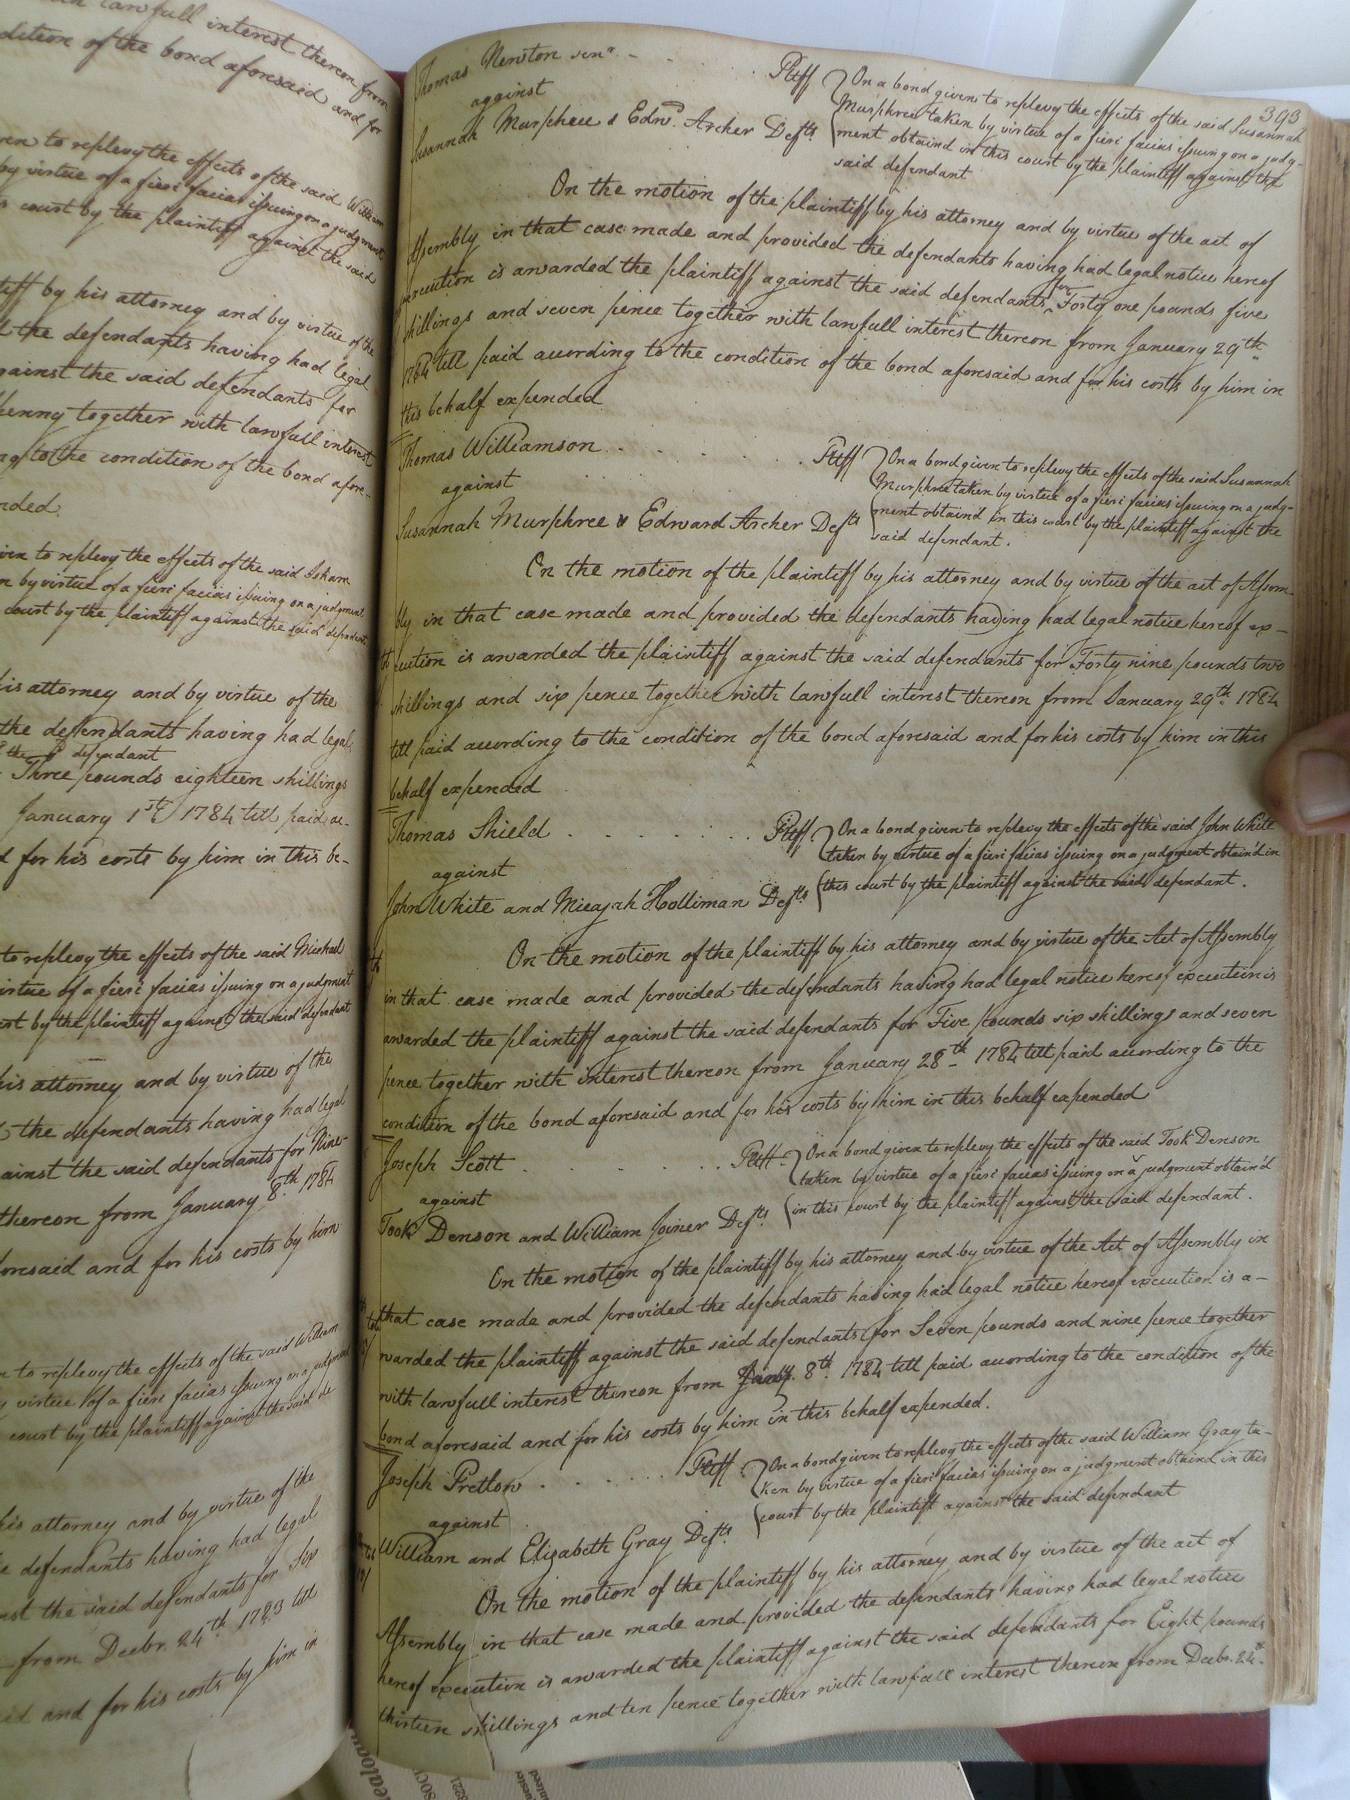 lawfull interest thereon from
dition of the bond aforesaid and for
ven to replevy the effects of the said William
by virtue of a fieri facias issuing on a judgment
s court by the plaintiff against the said
tiff by his attorney and by virtue of the
d the defendants having had legal
gainst the said defendants for
penny together with lawfull interest
ng to the condition of the bond afore-
nded.
iven to replevy the effects of the said Isham
n by virtue of a fieri facias issuing on a judgment
court by the plaintiff against the said defendant
his attorney and by virtue of the
the defendants having had legal
defendant
Three pounds eighteen shillings
January 1st 1784 till paid ac-
d for his costs by him in this be-
to replevy the effects of the said Michael
virtue of a fieri facias issuing on a judgment
urt by the plaintiff against the said defendant
his attorney and by virtue of the
d the defendants having had legal
ainst the said defendants for Nine-
thereon from January 8th 1784
foresaid and for his costs by him
n to replevy the effects of the said William
y virtue of a fieri facias issuing on a judgment
court by the plaintiff against the said de
his attorney and by virtue of the
e defendants having had legal
nst the said defendants for Six
from Decbr. 24th 1783 till
aid and for his costs by him in
393
Thomas Newston senr. Pltff
against
Susannah Murphree & Edwd. Archer Defts
On a bond given to replevy the effects of the said Susannah
Murphree taken by virtue of a fieri facias issuing on a judg-
ment obtaind in this court by the plaintiff against the
said defendant
On the motion of the plaintiff by his attorney and by virtue of the act of
Assembly in that case made and provided the defendants having had legal notice hereof
execution is awarded the plaintiff against the said defendants for Forty one pounds five
shillings and seven pence together with lawfull interest thereon from January 29th.
1784 till paid according to the condition of the bond aforesaid and for his costs by him in
this behalf expended
Thomas Williamson Pltff
against
Susannah Murphree & Edward Archer Defts
On a bond given to replevy the effects of the said Susannah
Murphree taken by virtue of a fieri facias issuing on a judg-
ment obtain'd in this court by the plaintiff against the
said defendant.
On the motion of the plaintiff by his attorney and by virtue of the act of Assem-
bly in that case made and provided the defendants having had legal notice hereof ex-
ecution is awarded the plaintiff against the said defendants for Forty nine pounds two
shillings and six pence together with lawfull interest thereon from January 29th. 1784
till paid according to the condition of the bond aforesaid and for his costs by him in this
behalf expended
Thomas Shield Pltff
against
John White and Micajah Holliman Defts.
On a bond given to replevy the effects of the said John White
taken by virtue of a fieri facias issuing on a judgment obtain'd in
this court by the plaintiff against the said defendant.
On the motion of the plaintiff by his attorney and by virtue of the Act of Assembly
in that case made and provided the defendants having had legal notice hereof execution is
awarded the plaintiff against the said defendants for Five pounds six shillings and seven
pence together with interest thereon from January 28th 1784 till paid according to the
condition of the bond aforesaid and for his costs by him in this behalf expended
Joseph Scott Pltff
against
Took Denson and William Joiner Defts.
On a bond given to replevy the effects of the said Took Denson
taken by virtue of a fieri facias issuing on a judgment obtain'd
in this court by the plaintiff against the said defendant.
On the motion of the plaintiff by his attorney and by virtue of the Act of Assembly in
that case made and provided the defendants having had legal notice hereof execution is a-
warded the plaintiff against the said defendants for Seven pounds and nine pence together
with lawfull interest thereon from Jany. 8th. 1784 till paid according to the condition of the
bond aforesaid and for his costs by him in this behalf expended.
Joseph Pretlow Pltff
against
William and Elizabeth Gray Defts.
On a bond given to replevy the effects of the said William Gray ta-
ken by virtue of a fieri facias issuing on a judgment obtaind in this
court by the plaintiff against the said defendant
On the motion of the plaintiff by his attorney and by virtue of the act of
Assembly in that case made and provided the defendants having had legal notice
hereof execution is awarded the plaintiff against the said defendants for Eight pounds
thirteen shillings and ten pence together with lawfull interest thereon from Decbr. 24th.